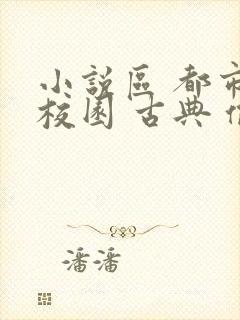 小說區 都市
校園 古典
潘潘